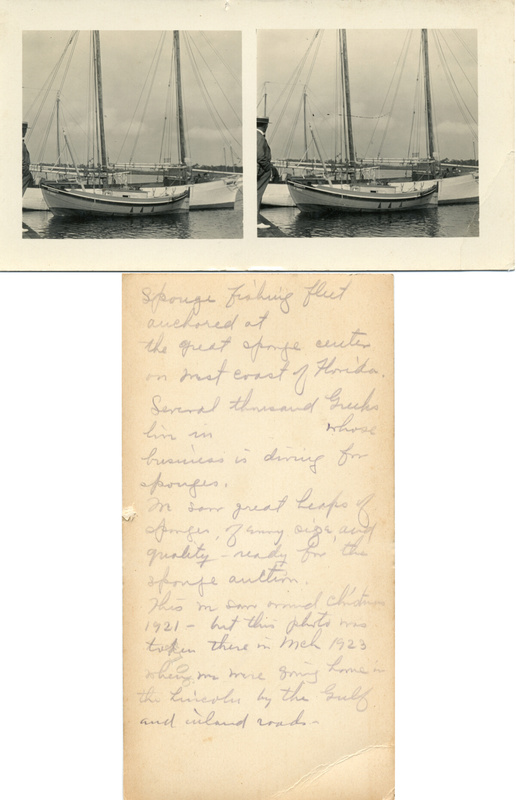 Sponge fishing fleet
anchored at
the great sponge center
on west coast of Florida.
Several thousand Greeks
live in whose
business is diving for
sponges.
We saw great heaps of
sponges, of every size and
quality - ready for the
sponge auction.
This we saw around Christmas
1921 - but this photo was
taken there in Mch 1923
when we were going home in
the Lincoln by the Gulf
and inland roads -